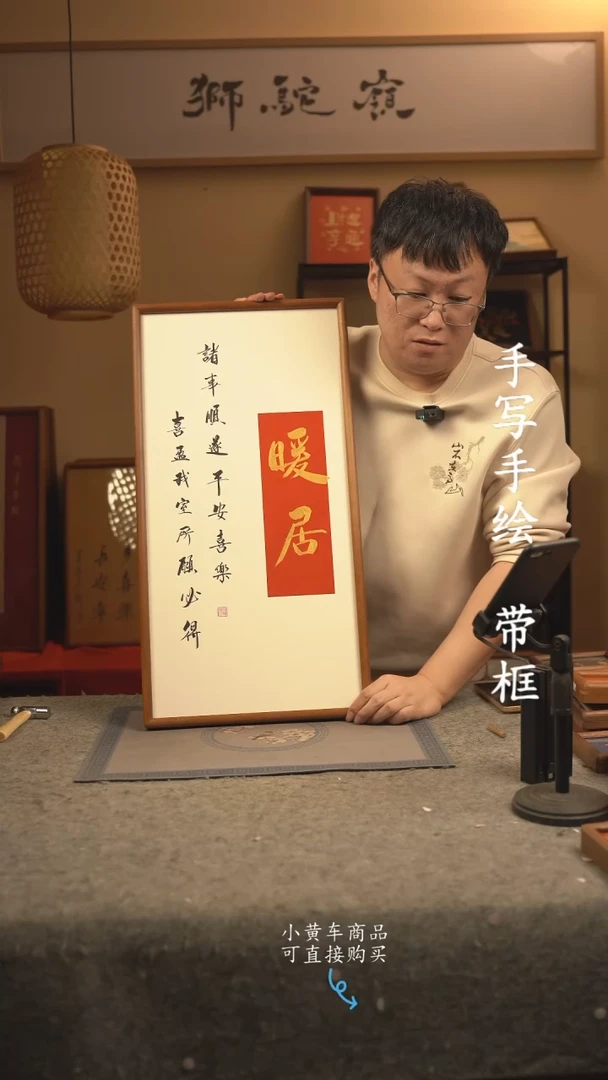 獅駝嶺
暖居
諸事順遂 平安喜樂
喜盈我室 所願必得
手写手绘 带框
小黄车商品
可直接购买